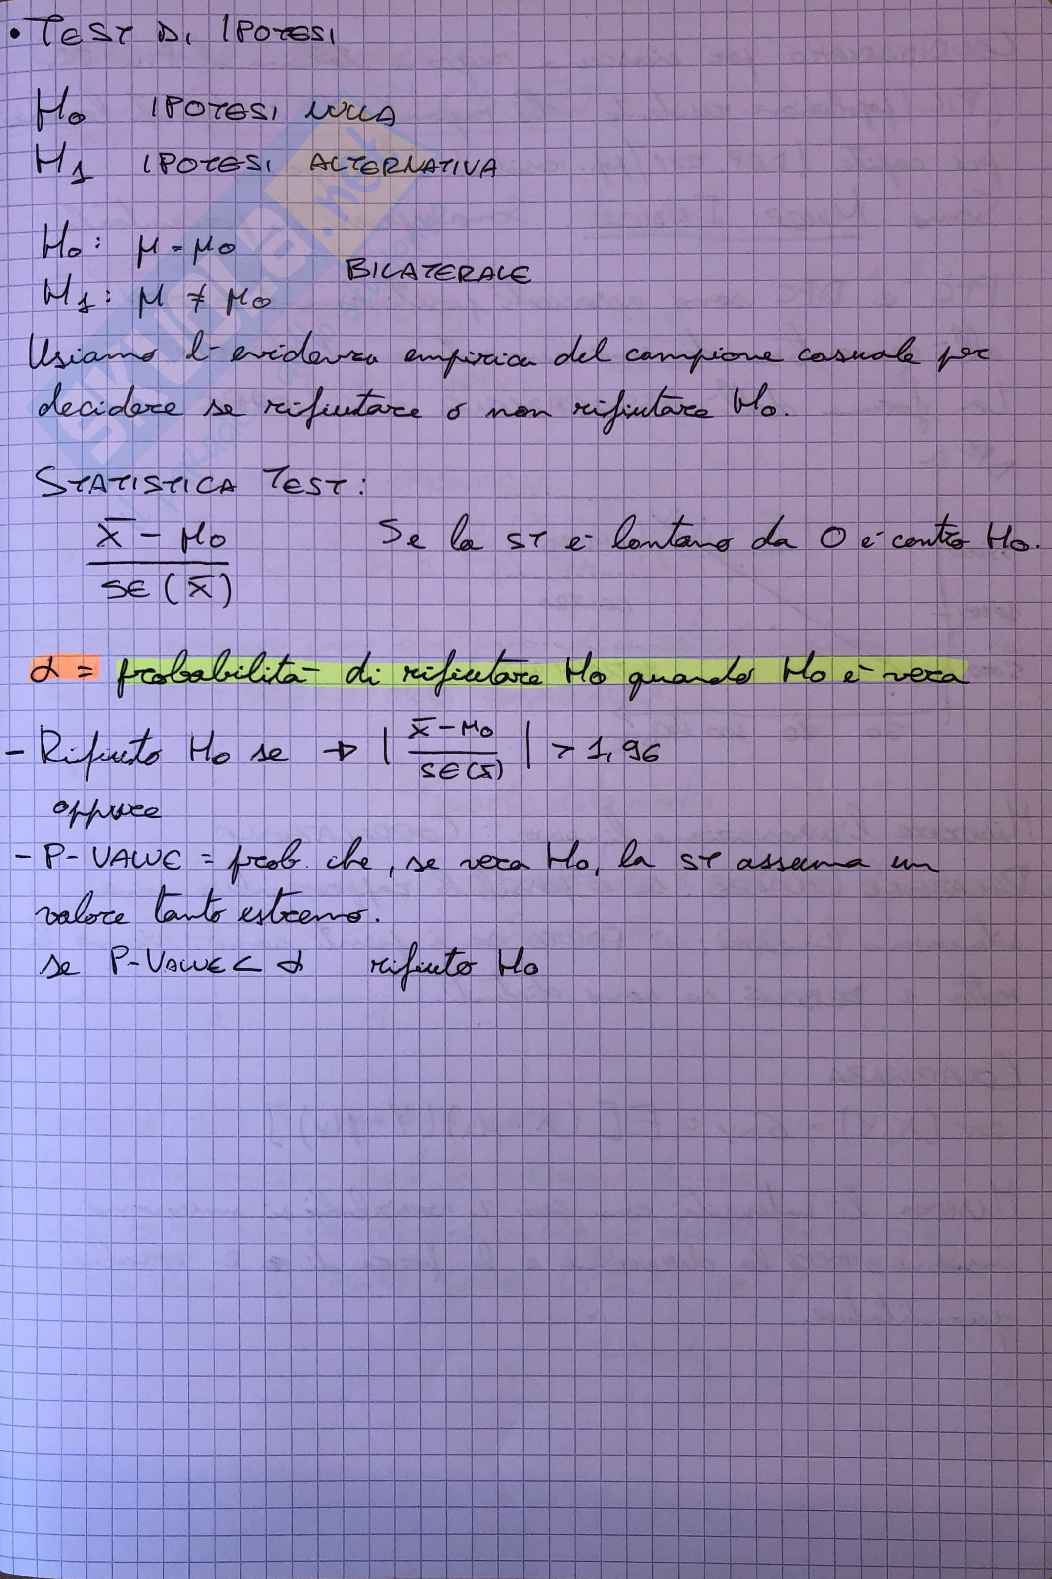 • TEST DI IPOTESI
H₀ IPOTESI NULLA
H₁ IPOTESI ALTERNATIVA
H₀: μ = μ₀
BILATERALE
H₁: μ ≠ μ₀
Usiamo l'evidenza empirica del campione casuale per
decidere se rifiutare o non rifiutare H₀.
STATISTICA TEST:
x̄ - μ₀
Se la ST è lontano da 0 è contro H₀.
SE (x̄)
α = probabilità di rifiutare H₀ quando H₀ è vera
- Rifiuto H₀ se → | (x̄ - μ₀) / SE(x̄) | > 1,96
oppure
- P-VALUE = prob. che, se vera H₀, la ST assuma un
valore tanto estremo.
se P-VALUE < α rifiuto H₀
SKUOLA.net